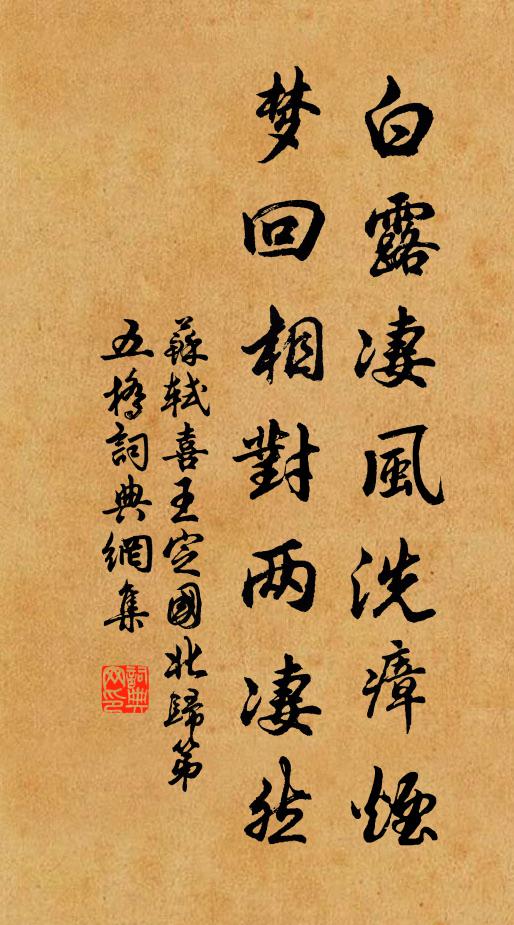 白露凄風洗瘴煙
梦回相對两凄然
蘇軾喜王定國北歸第
五橋詞典網集
詞典網印